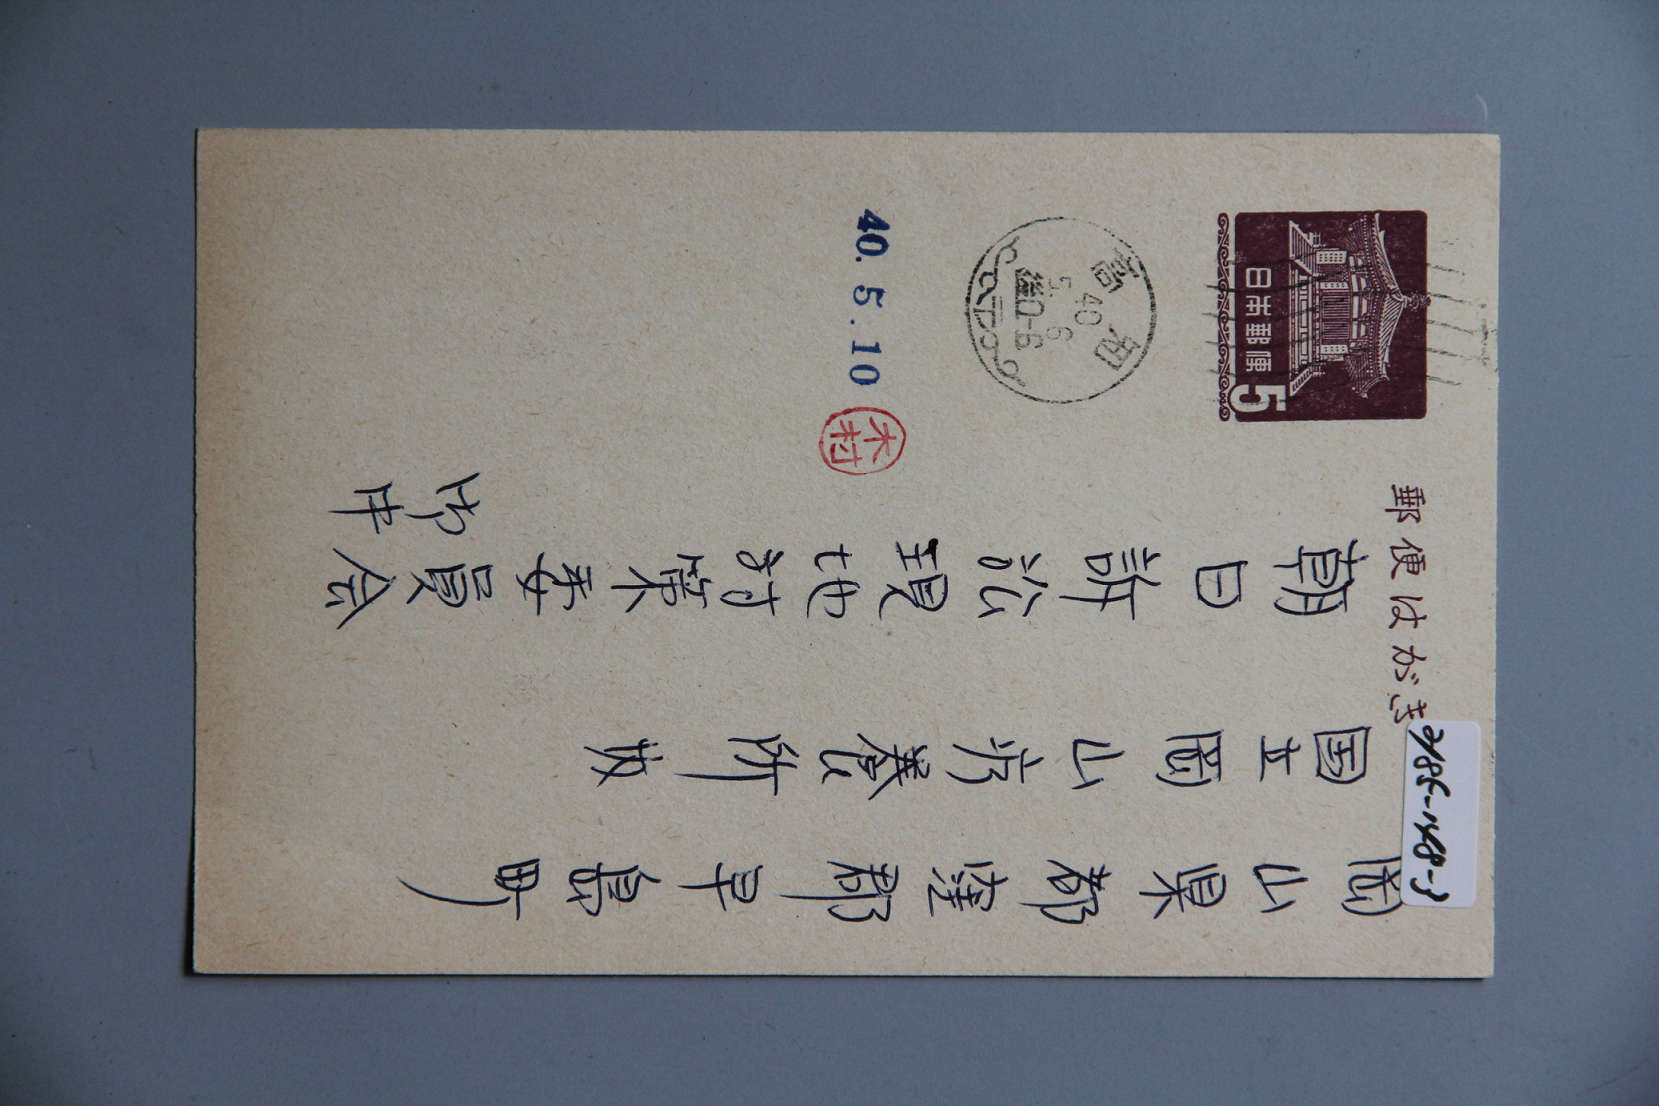 郵便はがき
日本郵便
5
高知
40
5. 6
後0-6
40. 5. 10
木村
岡山県都窪郡早島町
国立岡山療養所内
朝日訴訟現地対策委員会
御中